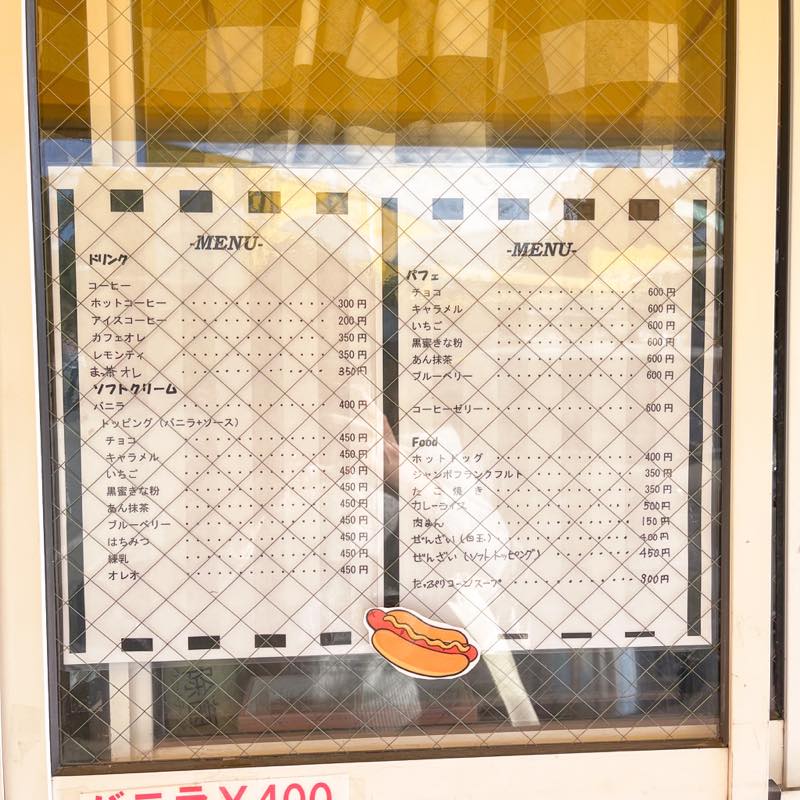 -MENU-
ドリンク
コーヒー
ホットコーヒー 300円
アイスコーヒー 200円
カフェオレ 350円
レモンティ 350円
まっ茶オレ 350円
ソフトクリーム
バニラ 400円
トッピング（バニラ+ソース）
チョコ 450円
キャラメル 450円
いちご 450円
黒蜜きな粉 450円
あん抹茶 450円
ブルーベリー 450円
はちみつ 450円
練乳 450円
オレオ 450円
-MENU-
パフェ
チョコ 600円
キャラメル 600円
いちご 600円
黒蜜きな粉 600円
あん抹茶 600円
ブルーベリー 600円
コーヒーゼリー 600円
Food
ホットドッグ 400円
ジャンボフランクフルト 350円
たこ焼き 350円
カレーライス 500円
肉まん 150円
ぜんざい(白玉) 400円
ぜんざい(ソフトトッピング) 450円
たっぷりコーンスープ 300円
バニラ¥400